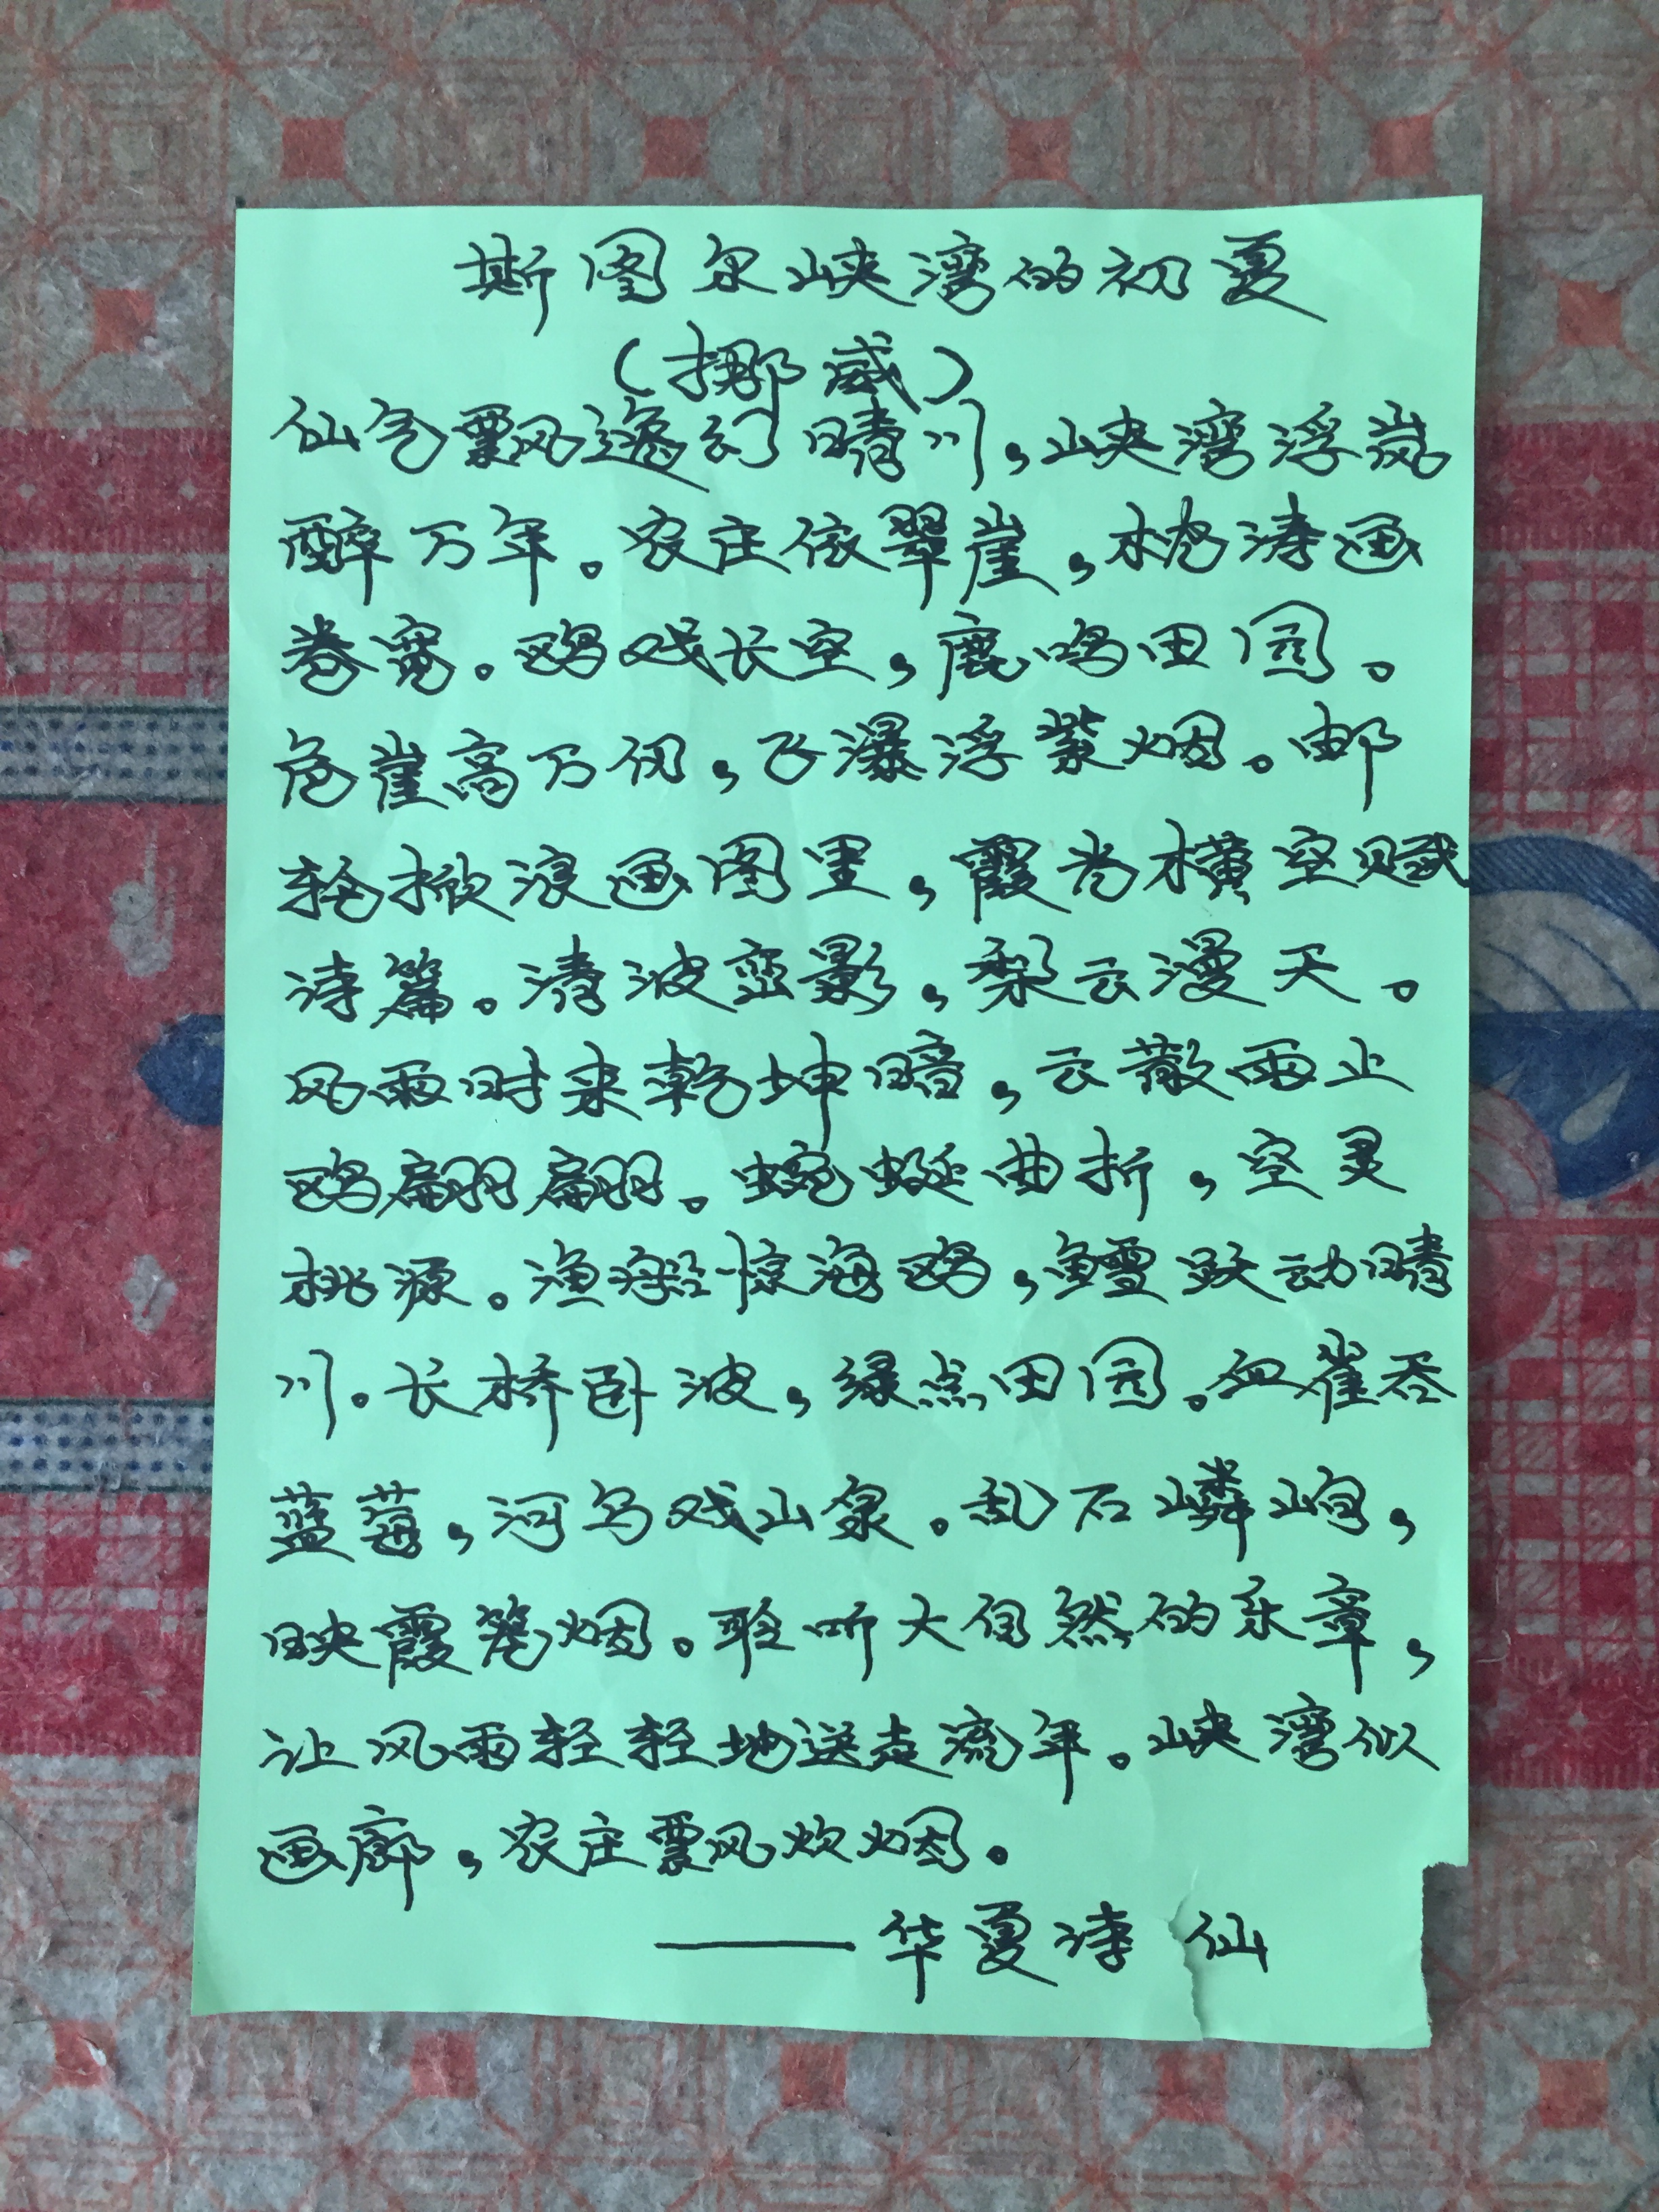 斯图尔峡湾的初夏
（挪威）
仙气飘逸幻晴川，峡湾浮岚
醉万年。农庄依翠崖，松涛画
卷宽。鸥戏长空，鹿鸣田园。
危崖高万仞，飞瀑浮紫烟。邮
轮掀浪画图里，霞光横空赋
诗篇。清波峦影，梨云漫天。
风雨时来乾坤暗，云散雨止
鸥翩翩翩。蜿蜒曲折，空灵
桃源。渔船惊海鸥，鳕跃动晴
川。长桥卧波，绿点田园。血雀吞
蓝莓，河乌戏山泉。乱石嶙峋，
映霞笼烟。聆听大自然的乐章，
让风雨轻轻地送走流年。峡湾似
画廊，农庄飘炊烟。
——华夏诗仙